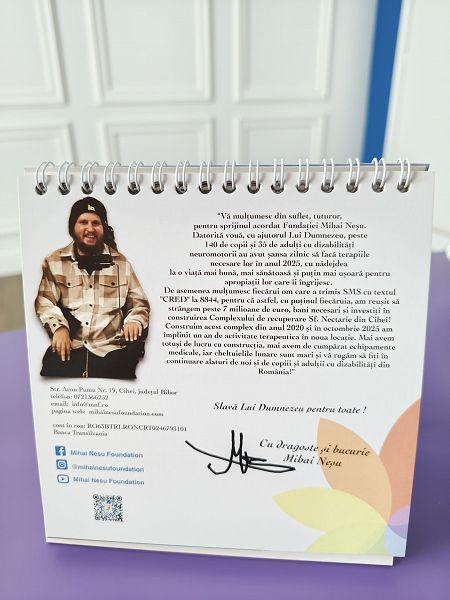 "Vă mulțumesc din suflet, tuturor,
pentru sprijinul acordat Fundației Mihai Neșu.
Datorită vouă, cu ajutorul Lui Dumnezeu, peste
140 de copii și 55 de adulți cu dizabilități
neuromotorii au avut șansa zilnic să facă terapiile
necesare lor în anul 2025, cu nădejdea
la o viață mai bună, mai sănătoasă și puțin mai ușoară pentru
apropiații lor care îi îngrijesc.
De asemenea mulțumesc fiecărui om care a trimis SMS cu textul
"CRED" la 8844, pentru că astfel, cu puținul fiecăruia, am reușit să
strângem peste 7 milioane de euro, bani necesari și investiți în
construirea Complexului de recuperare Sf. Nectarie din Cihei!
Construim acest complex din anul 2020 și în octombrie 2025 am
împlinit un an de activitate terapeutică în noua locație. Mai avem
totuși de lucru cu construcția, mai avem de cumpărat echipamente
medicale, iar cheltuielile lunare sunt mari și vă rugăm să fiți în
continuare alături de noi și de copiii și adulții cu dizabilități din
România!"
Str. Aron Pumu Nr. 19, Cihei, județul Bihor
telefon: 0721366252
email: info@mnf.ro
pagina web: mihainesufoundation.com
cont în ron: RO65BTRLRONCRT0246795101
Banca Transilvania
Slavă Lui Dumnezeu pentru toate !
Cu dragoste și bucurie
Mihai Neșu
Mihai Nesu Foundation
@mihainesufoundation
Mihai Nesu Foundation